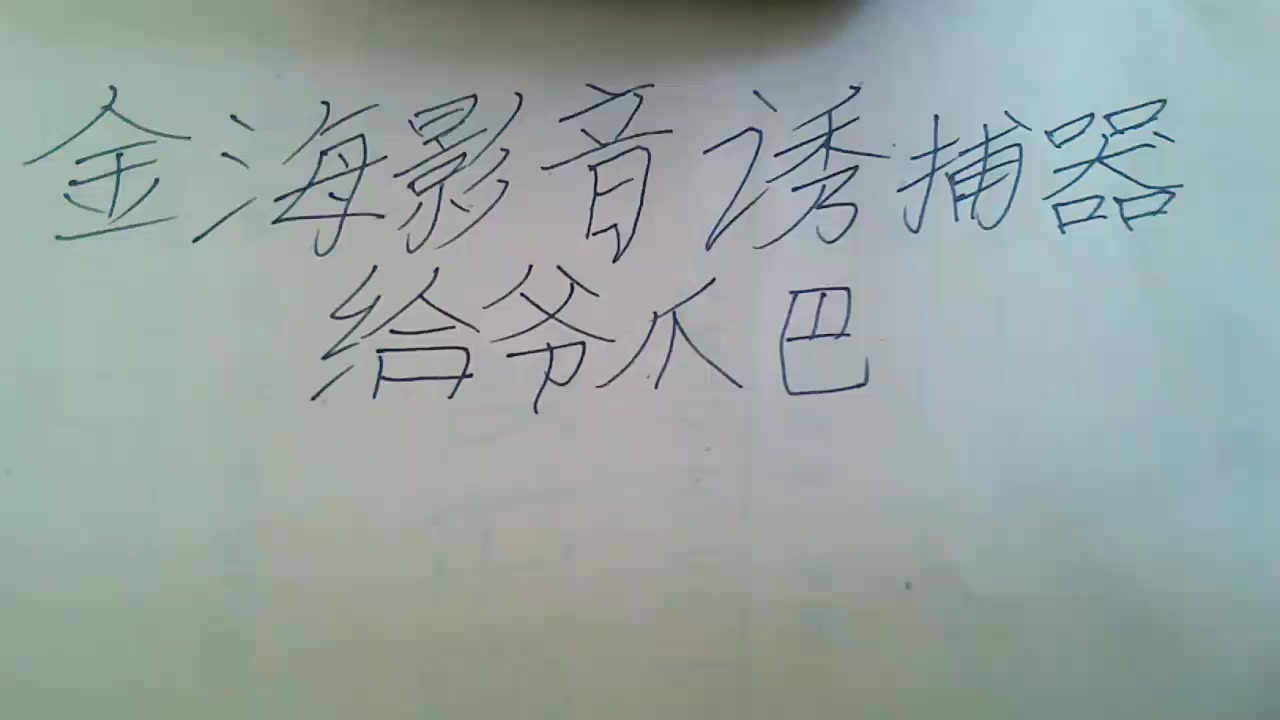 金海影音诱捕器
给爷爪巴